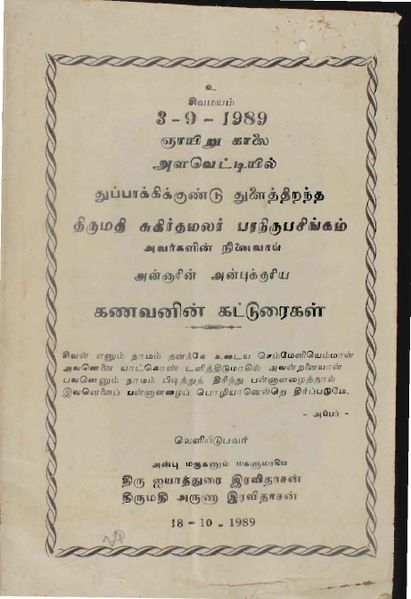 உ
சிவமயம்
3-9-1989
ஞாயிறு காலை
அளவெட்டியில்
துப்பாக்கிக்குண்டு துளைத்திறந்த
திருமதி சுகிர்தமலர் பரநிருபசிங்கம்
அவர்களின் நினைவாய்
அன்னாரின் அன்புக்குரிய
கணவனின் கட்டுரைகள்
சிவன் எனும் நாமம் தனக்கே உடைய செம்மேனியெம்மான்
அவனெனை யாட்கொண் டளித்திடுமாகில் அவன்றனையான்
பவனெனும் நாமம் பிடித்துத் திரிந்து பன்னாளழைத்தால்
இவனெனைப் பன்னாளழைப் பொழியானென்றெ திர்ப்படுமே.
- அப்பர் -
வெளியிடுபவர்
அன்பு மருகனும் மகளுமாகிய
திரு ஐயாத்துரை இரவிதாசன்
திருமதி அருணா இரவிதாசன்
18-10-1989